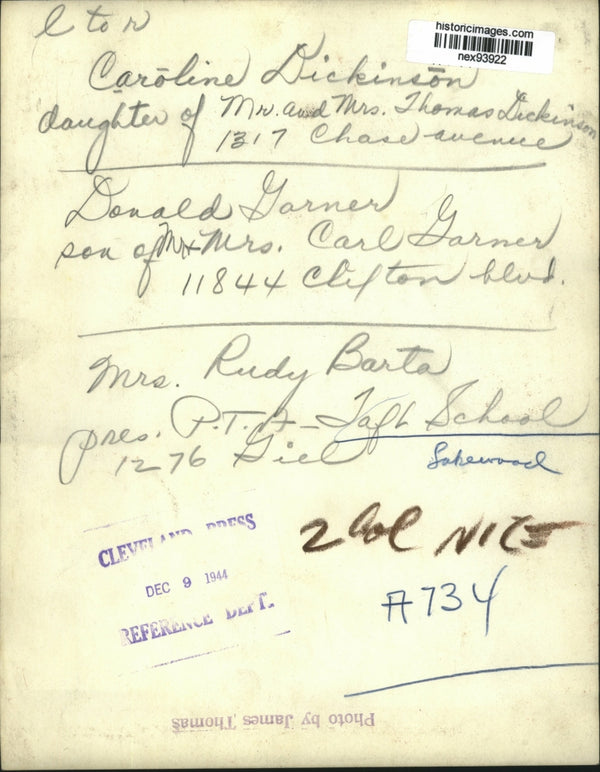 l to r
historicimages.com
nex93922
Caroline Dickinson
daughter of Mr. and Mrs. Thomas Dickinson
1317 Chase avenue
Donald Garner
son of Mr + Mrs. Carl Garner
11844 Clifton blvd.
Mrs. Rudy Barta
pres. P.T.A - Taft School
1276 Giel
Lakewood
CLEVELAND PRESS
DEC 9 1944
REFERENCE DEPT.
2 Col
A734
Photo by James Thomas